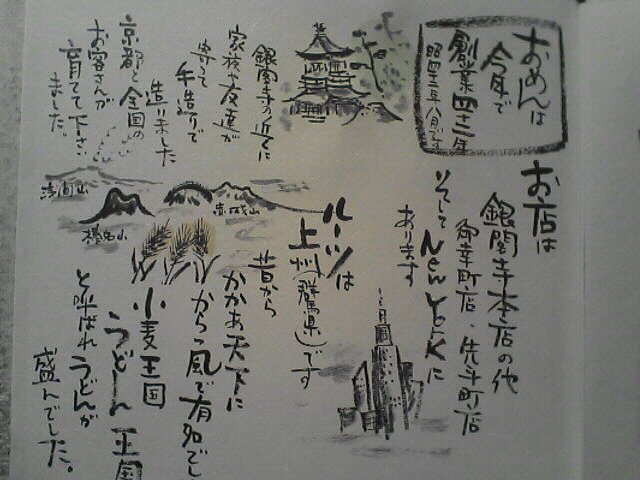 おめんは
今年で
創業四十二年
昭四十二年八月です
銀閣寺の近くに
家族や友達が
寄って
手造りで
造りました
京都と全国の
お客さんが
育てて下さい
ました。
お店は
銀閣寺本店の他
御幸町店・先斗町店
そして New York に
あります
ルーツは
上州(群馬県)です
昔から
かかあ天下に
からっ風で有名でし
小麦王国
うどーん王国
と呼ばれうどんが
盛んでした。
浅間山
榛名山
赤城山